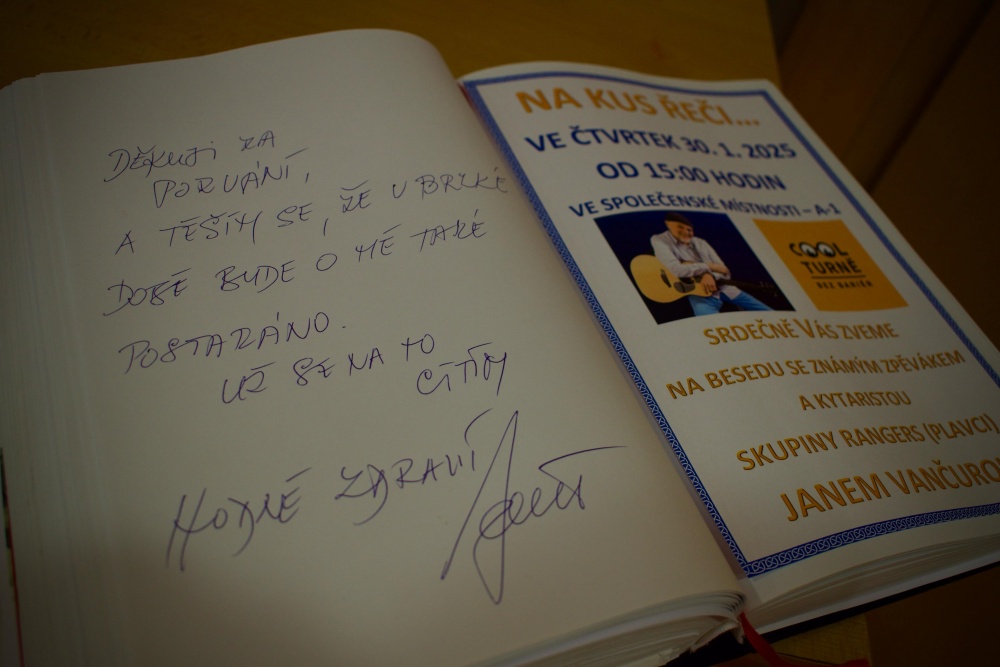 DĚKUJI ZA
POZVÁNÍ,
A TĚŠÍM SE, ŽE V BRZKÉ
DOBĚ BUDE O MĚ TAKÉ
POSTARÁNO.
UŽ SE NA TO
CÍTÍM
HODNĚ ZDRAVÍ
NA KUS ŘEČI...
VE ČTVRTEK 30. 1. 2025
OD 15:00 HODIN
VE SPOLEČENSKÉ MÍSTNOSTI – A-1
COOL
TURNÉ
BEZ BARIÉR
SRDEČNĚ VÁS ZVEME
NA BESEDU SE ZNÁMÝM ZPĚVÁKEM
A KYTARISTOU
SKUPINY RANGERS (PLAVCI)
JANEM VANČUROU